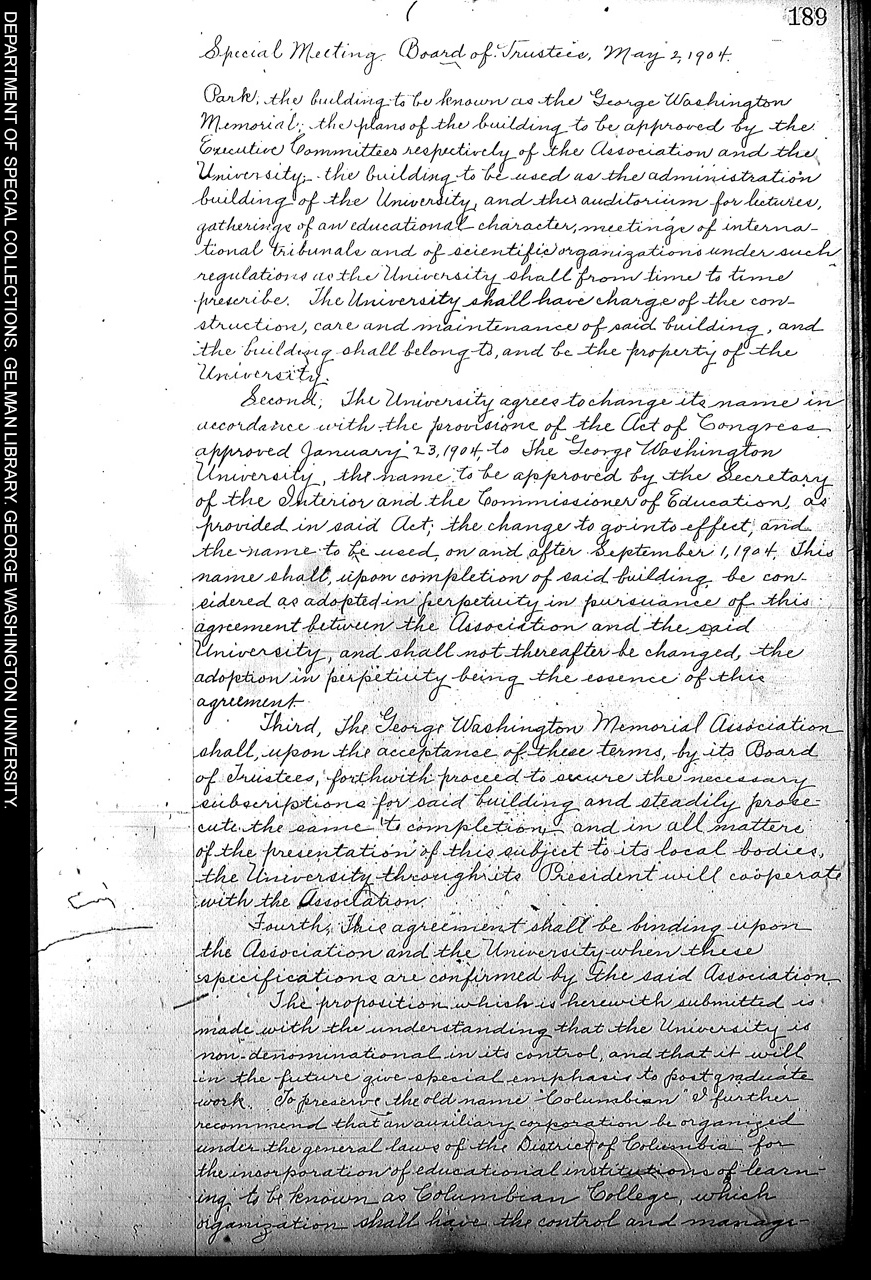 189
Special Meeting Board of Trustees, May 2, 1904.
Park, the building to be known as the George Washington
Memorial; the plans of the building to be approved by the
Executive Committees respectively of the Association and the
University; the building to be used as the administration
building of the University, and the auditorium for lectures,
gatherings of an educational character, meetings of interna-
tional tribunals and of scientific organizations under such
regulations as the University shall from time to time
prescribe. The University shall have charge of the con-
struction, care and maintenance of said building, and
the building shall belong to, and be the property of the
University.
Second, The University agrees to change its name in
accordance with the provisions of the Act of Congress
approved January 23, 1904, to The George Washington
University, the name to be approved by the Secretary
of the Interior and the Commissioner of Education, as
provided in said Act, the change to go into effect, and
the name to be used, on and after September 1, 1904. This
name shall, upon completion of said building, be con-
sidered as adopted in perpetuity in pursuance of this
agreement between the Association and the said
University, and shall not thereafter be changed, the
adoption in perpetuity being the essence of this
agreement.
Third, The George Washington Memorial Association
shall, upon the acceptance of these terms, by its Board
of Trustees, forthwith proceed to secure the necessary
subscriptions for said building and steadily prose-
cute the same to completion, and in all matters
of the presentation of this subject to its local bodies,
the University through its President will coöperate
with the Association.
Fourth, This agreement shall be binding upon
the Association and the University when these
specifications are confirmed by the said Association.
The proposition which is herewith submitted is
made with the understanding that the University is
non-denominational in its control, and that it will
in the future give special emphasis to post graduate
work. To preserve the old name "Columbian" I further
recommend that an auxiliary corporation be organized
under the general laws of the District of Columbia for
the incorporation of educational institutions of learn-
ing to be known as Columbian College, which
organization shall have the control and manage-
DEPARTMENT OF SPECIAL COLLECTIONS, GELMAN LIBRARY, GEORGE WASHINGTON UNIVERSITY.